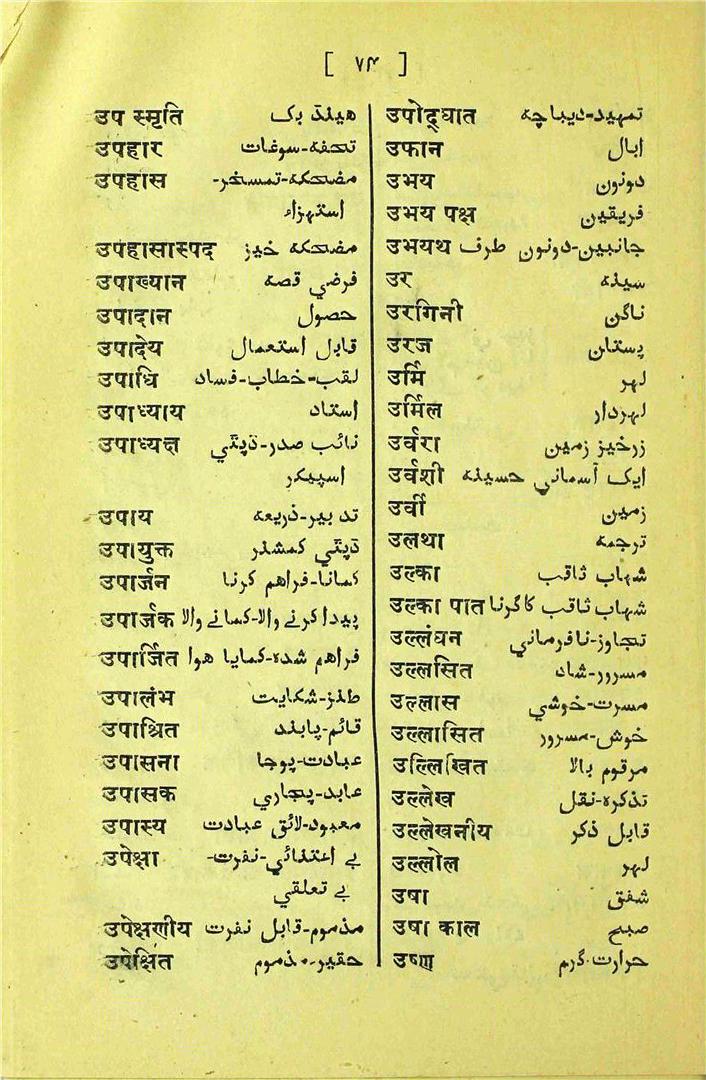 [ ۷۴ ]
उप स्मृति ھینڈ بک
उपहार تحفہ-سوغات
उपहास مضحکہ-تمسخر-
استہزاء
उपहासास्पद مضحکہ خیز
उपाख्यान فرضي قصہ
उपादान حصول
उपादेय قابل استعمال
उपाधि لقب-خطاب-فساد
उपाध्याय استاد
उपाध्यक्ष نائب صدر-ڈپٹي
اسپیکر
उपाय تدبیر-ذریعہ
उपायुक्त ڈپٹي کمشنر
उपार्जन کمانا-فراھم کرنا
उपार्जक پیدا کرنے والا-کمانے والا
उपार्जित فراھم شدہ-کمایا ھوا
उपालंभ طنز-شکایت
उपाश्रित قائم-پابند
उपासना عبادت-پوجا
उपासक عابد-پجاري
उपास्य معبود-لائق عبادت
उपेक्षा بے اعتنائي-نفرت-
بے تعلقي
उपेक्षणीय مذموم-قابل نفرت
उपेक्षित حقیر-مذموم
उपोद्घात تمہید-دیباچہ
उफान ابال
उभय دونون
उभय पक्ष فریقین
उभयथ جانبین-دونون طرف
उर سینہ
उरगिनी ناگن
उरज پستان
उर्मि لہر
उर्मिल لہردار
उर्वरा زرخیز زمین
उर्वशी ایک آسماني حسینہ
उर्वी زمین
उलथा ترجمہ
उल्का شہاب ثاقب
उल्का पात شہاب ثاقب کا گرنا
उल्लंघन تجاوز-نافرماني
उल्लसित مسرور-شاد
उल्लास مسرت-خوشي
उल्लासित خوش-مسرور
उल्लिखित مرقوم بالا
उल्लेख تذکرہ-نقل
उल्लेखनीय قابل ذکر
उल्लोल لہر
उषा شفق
उषा काल صبح
उष्ण حرارت-گرم